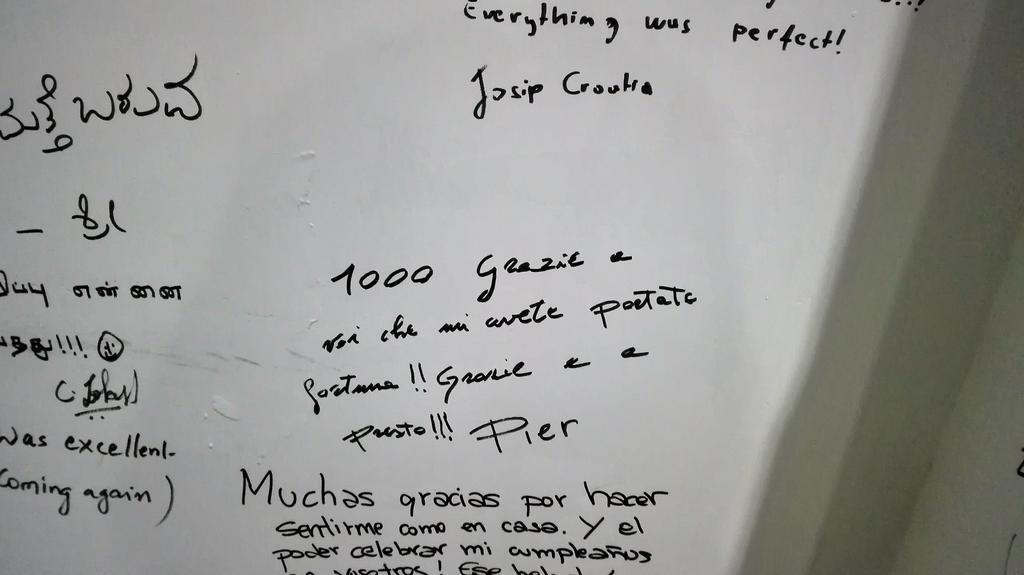 Everything was perfect!
Josip Croatia
ಮತ್ತೆ ಬರುವ
- ಶ್ರೀ
என்னை
!!!
was excellent.
Coming again)
1000 Grazie a
voi che mi avete portato
fortuna!! Grazie e a
presto!!! Pier
Muchas gracias por hacer
sentirme como en casa. Y el
poder celebrar mi cumpleaños
vosotros! Ese